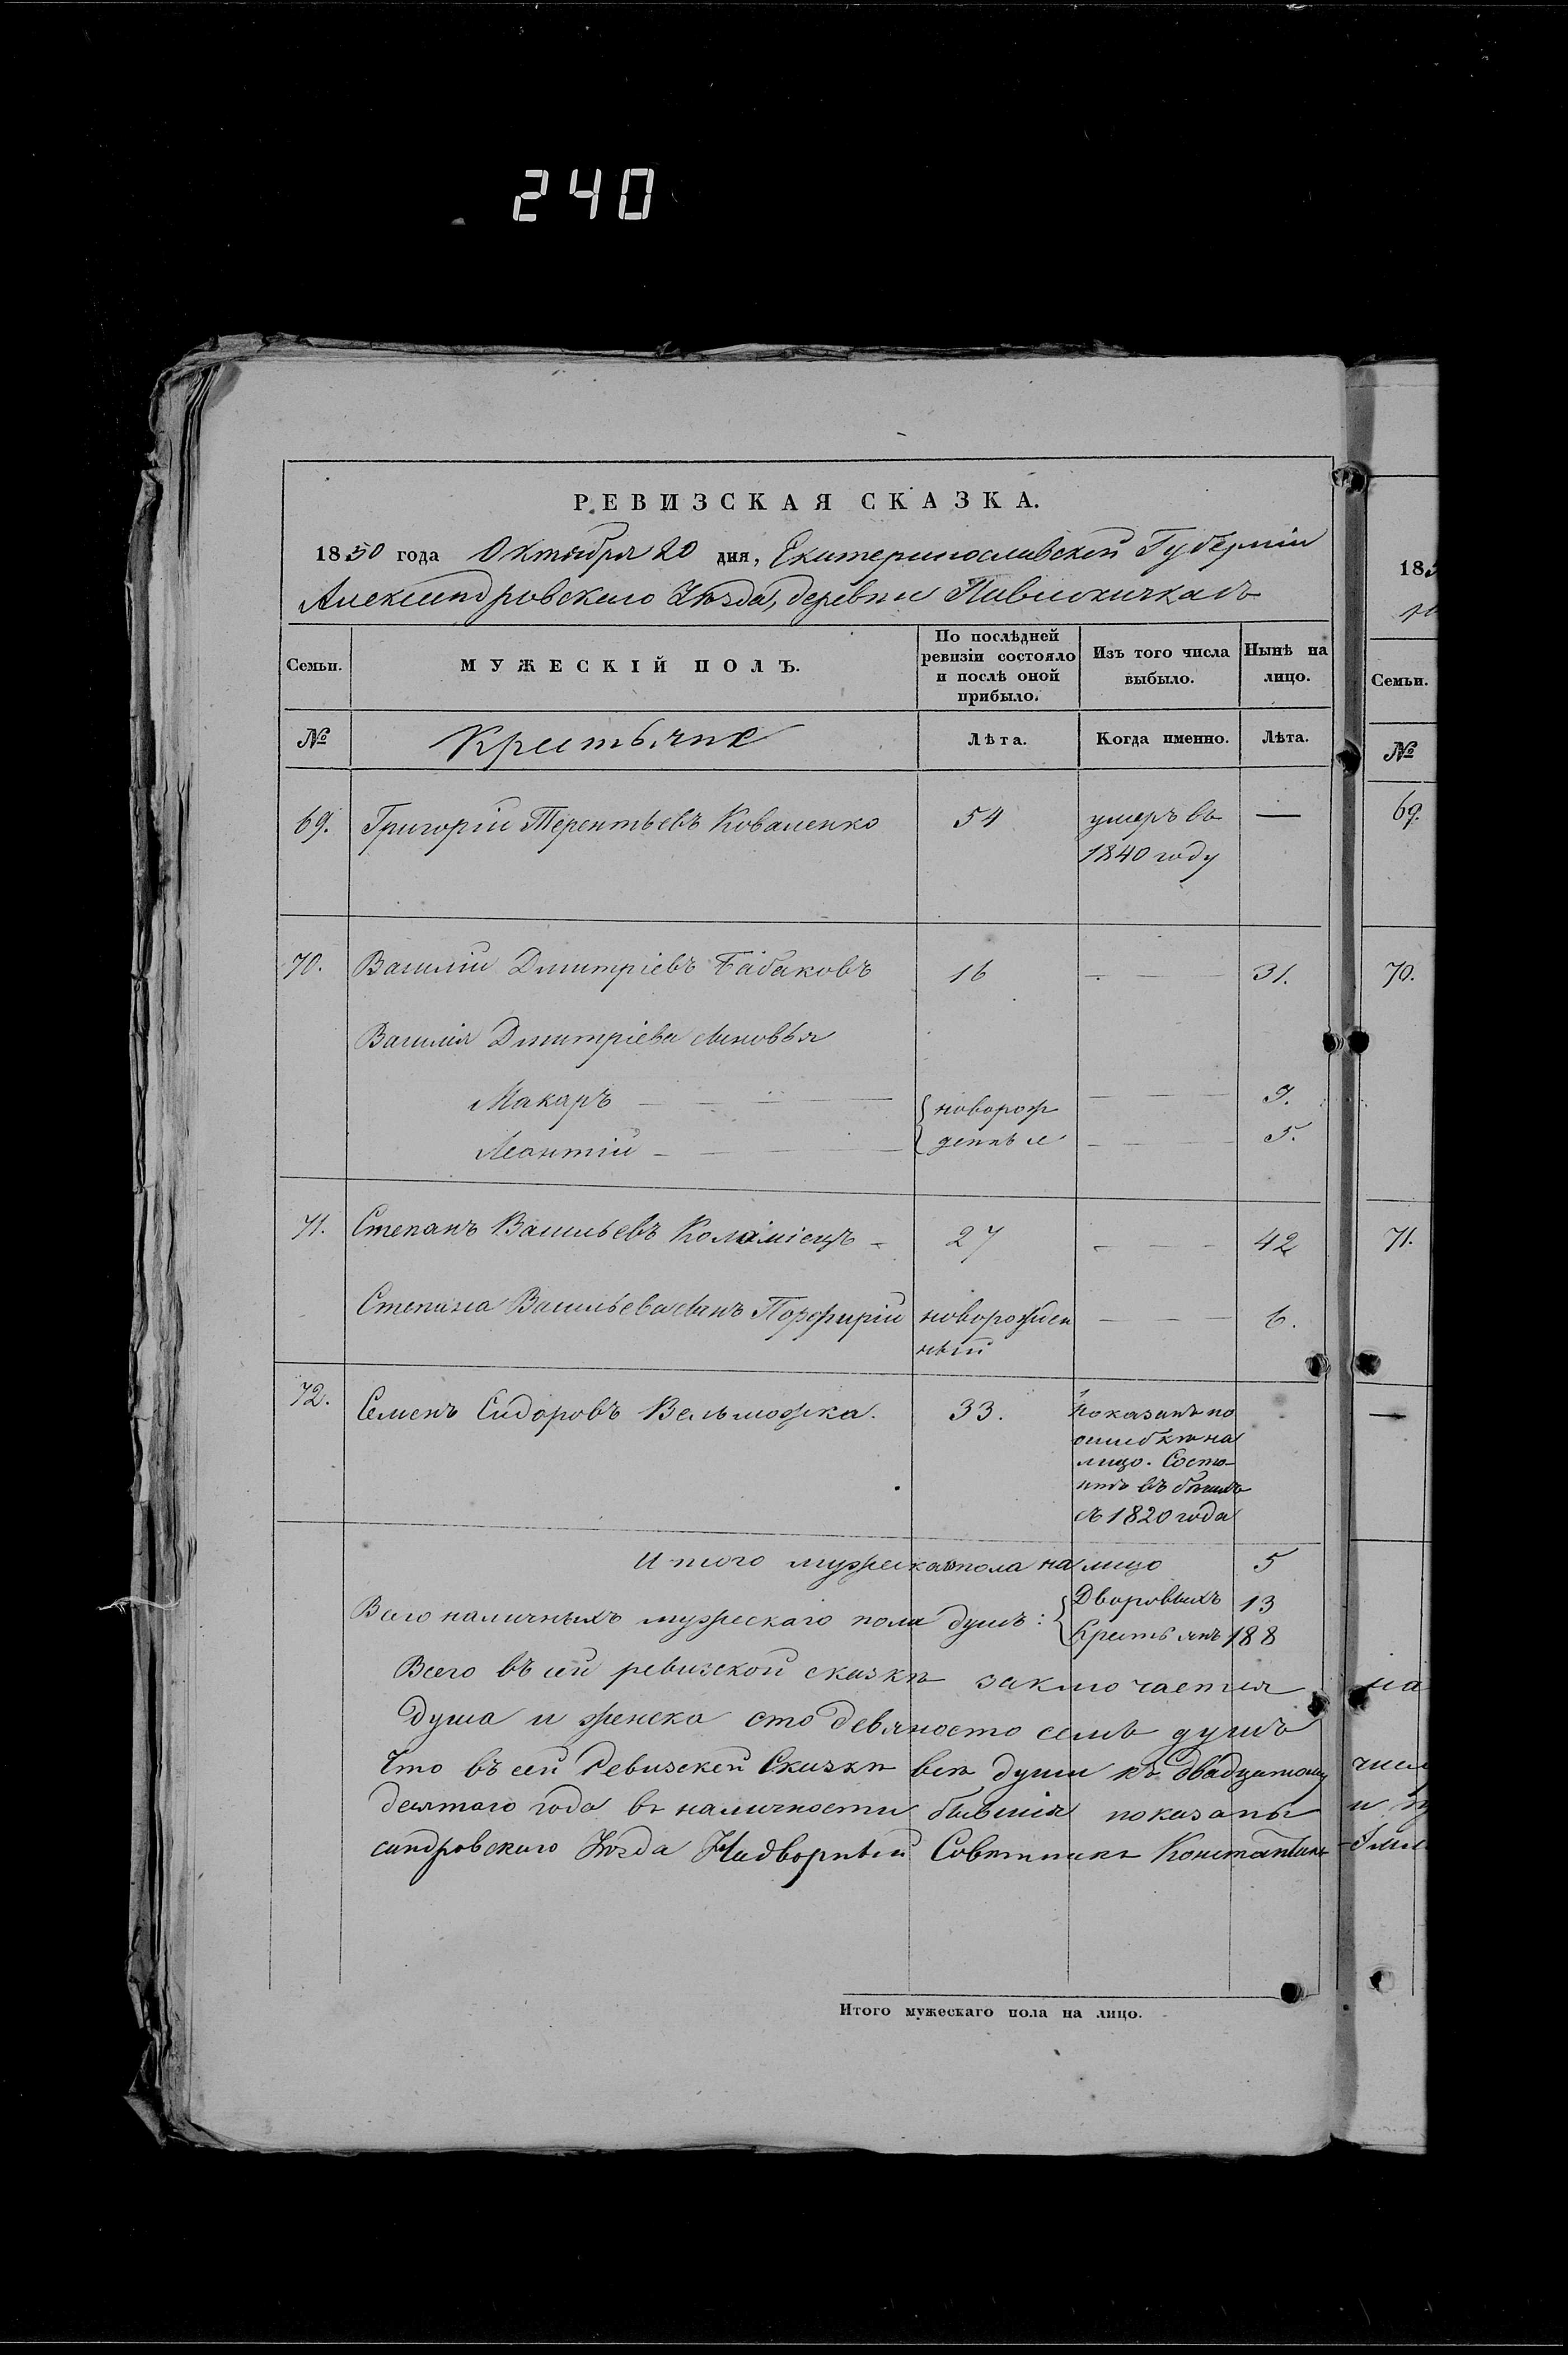 240
РЕВИЗСКАЯ СКАЗКА.
1850 года Октября 20 дня, Екатеринославской Губерніи
Александровскаго Уѣзда, деревни Павлокичкасъ
Семьи.
МУЖЕСКІЙ ПОЛЪ.
По послѣдней
ревизіи состояло
и послѣ оной
прибыло.
Изъ того числа
выбыло.
Нынѣ на
лицо.
№
Крестьяне
Лѣта.
Когда именно.
Лѣта.
69. Григорій Терентьевъ Коваленко 54 умеръ въ —
1840 году
70. Василій Дмитріевъ Бабаковъ 16 — — — 31.
Василія Дмитріева сыновья
Макаръ — — — новорож — — — 9.
Леонтій — — — денные — — — 5.
71. Степанъ Васильевъ Коломіецъ - 27 — — — 42
Степана Васильева сынъ Порфирій новорожден — — — 6.
ный
72. Семенъ Сидоровъ Вельможка. 33. Показанъ по
ошибкѣ на
лицо. Состо-
итъ въ бѣгахъ
съ 1820 года
Итого мужеска пола на лицо 5
Всего наличныхъ мужескаго пола душъ: Дворовыхъ 13
Крестьянъ 188
Всего въ сей ревизской сказкѣ заключается
душа и женска сто девяносто семь душъ
Что въ сей Ревизской Сказкѣ всѣ души къ двадцатому
десятаго года въ наличности бывшія показаны
сандровскаго Уѣзда Надворный Совѣтникъ Константинъ
Итого мужескаго пола на лицо.
18
Семьи.
№
69.
70.
71.
—
на
числ
и